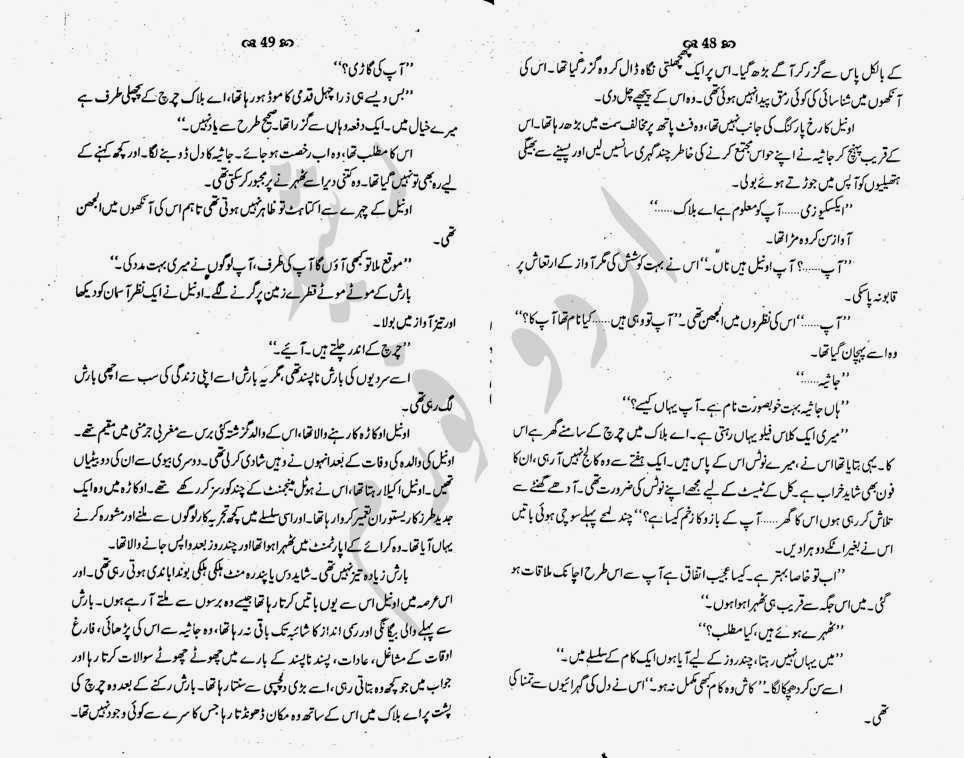 48
کے بالکل پاس سے گزر کر آگے بڑھ گیا۔ اس پر ایک چھچھلتی نگاہ ڈال کر وہ گزر گیا تھا۔ اس کی
آنکھوں میں شناسائی کی کوئی رمق پیدا نہیں ہوئی تھی۔ وہ اس کے پیچھے چل دی۔
اونیل کا رخ پارکنگ کی جانب نہیں تھا، وہ فٹ پاتھ پر مخالف سمت میں بڑھ رہا تھا۔ اس
کے قریب پہنچ کر جاثیہ نے اپنے حواس مجتمع کرنے کی خاطر چند گہری سانسیں لیں اور پسینے سے بھیگی
ہتھیلیوں کو آپس میں جوڑتے ہوئے بولی۔
’’ایکسکیوز می......آپ کو معلوم ہے اے بلاک......‘‘
آواز سن کر وہ مڑا تھا۔
’’آپ......؟ آپ اونیل ہیں ناں۔‘‘ اس نے بہت کوشش کی مگر آواز کے ارتعاش پر
قابو نہ پاسکی۔
’’آپ......‘‘ اس کی نظروں میں الجھن تھی۔ ’’آپ تو وہی ہیں......کیا نام تھا آپ کا؟‘‘
وہ اسے پہچان گیا تھا۔
’’جاثیہ......‘‘
’’ہاں جاثیہ بہت خوبصورت نام ہے۔ آپ یہاں کیسے؟‘‘
’’میری ایک کلاس فیلو یہاں رہتی ہے۔ اے بلاک میں چرچ کے سامنے گھر ہے اس
کا۔ یہی بتایا تھا اس نے، میرے نوٹس اس کے پاس ہیں۔ ایک ہفتے سے وہ کالج نہیں آ رہی، ان کا
فون بھی شاید خراب ہے۔ کل کے ٹیسٹ کے لیے مجھے اپنے نوٹس کی ضرورت تھی۔ آدھے گھنٹے سے
تلاش کر رہی ہوں اس کا گھر......آپ کے بازو کا زخم کیسا ہے؟‘‘ چند لمحے پہلے سوچی ہوئی باتیں
اس نے بغیر اٹکے دوہرا دیں۔
’’اب تو خاصا بہتر ہے۔ کیسا عجیب اتفاق ہے آپ سے اس طرح اچانک ملاقات ہو
گئی۔ میں اس جگہ سے قریب ہی ٹھہرا ہوا ہوں۔‘‘
’’ٹھہرے ہوئے ہیں، کیا مطلب؟‘‘
’’میں یہاں نہیں رہتا، چند روز کے لیے آیا ہوں ایک کام کے سلسلے میں۔‘‘
اسے سن کر دھچکا لگا۔ ’’کاش وہ کام کبھی مکمل نہ ہو۔‘‘ اس نے دل کی گہرائیوں سے تمنا کی
تھی۔
49
’’آپ کی گاڑی؟‘‘
’’بس ویسے ہی ذرا چہل قدمی کا موڈ ہو رہا تھا، اے بلاک چرچ کے پچھلی طرف ہے
میرے خیال میں۔ ایک دفعہ وہاں سے گزرا تھا۔ صحیح طرح سے یاد نہیں۔‘‘
اس کا مطلب تھا، وہ اب رخصت ہو جائے۔ جاثیہ کا دل ڈوبنے لگا۔ اور کچھ کہنے کے
لیے رہ بھی تو نہیں گیا تھا۔ وہ کتنی دیر اسے ٹھہرنے پر مجبور کر سکتی تھی۔
اونیل کے چہرے سے اکتاہٹ تو ظاہر نہیں ہوتی تھی تاہم اس کی آنکھوں میں الجھن
تھی۔
’’موقع ملا تو کبھی آؤں گا آپ کی طرف، آپ لوگوں نے میری بہت مدد کی۔‘‘
بارش کے موٹے موٹے قطرے زمین پر گرنے لگے۔ اونیل نے ایک نظر آسمان کو دیکھا
اور تیز آواز میں بولا۔
’’چرچ کے اندر چلتے ہیں۔ آیئے۔‘‘
اسے سردیوں کی بارش ناپسند تھی، مگر یہ بارش اسے اپنی زندگی کی سب سے اچھی بارش
لگ رہی تھی۔
اونیل اوکاڑہ کا رہنے والا تھا، اس کے والد گزشتہ کئی برس سے مغربی جرمنی میں مقیم تھے۔
اونیل کی والدہ کی وفات کے بعد انہوں نے وہیں شادی کر لی تھی۔ دوسری بیوی سے ان کی دو بیٹیاں
تھیں۔ اونیل اکیلا رہتا تھا، اس نے ہوٹل مینجمنٹ کے چند کورسز کر رکھے تھے۔ اوکاڑہ میں وہ ایک
جدید طرز کا ریستوران تعمیر کروا رہا تھا۔ اور اسی سلسلے میں کچھ تجربہ کار لوگوں سے ملنے اور مشورہ کرنے
یہاں آیا تھا۔ وہ کرائے کے اپارٹمنٹ میں ٹھہرا ہوا تھا اور چند روز بعد واپس جانے والا تھا۔
بارش زیادہ تیز نہیں تھی۔ شاید دس یا پندرہ منٹ ہلکی ہلکی بوندا باندی ہوتی رہی تھی۔ اور
اس عرصہ میں اونیل اس سے یوں باتیں کرتا رہا تھا جیسے وہ برسوں سے ملتے آ رہے ہوں۔ بارش
سے پہلے والی بیگانگی اور رسمی انداز کا شائبہ تک باقی نہ رہا تھا، وہ جاثیہ سے اس کی پڑھائی، فارغ
اوقات کے مشاغل، عادات، پسند ناپسند کے بارے میں چھوٹے چھوٹے سوالات کرتا رہا اور
جواب میں جو کچھ وہ بتاتی رہی، اسے بڑی دلچسپی سے سنتا رہا تھا۔ بارش رکنے کے بعد وہ چرچ کی
پشت پر اے بلاک میں اس کے ساتھ وہ مکان ڈھونڈتا رہا جس کا سرے سے کوئی وجود نہیں تھا۔